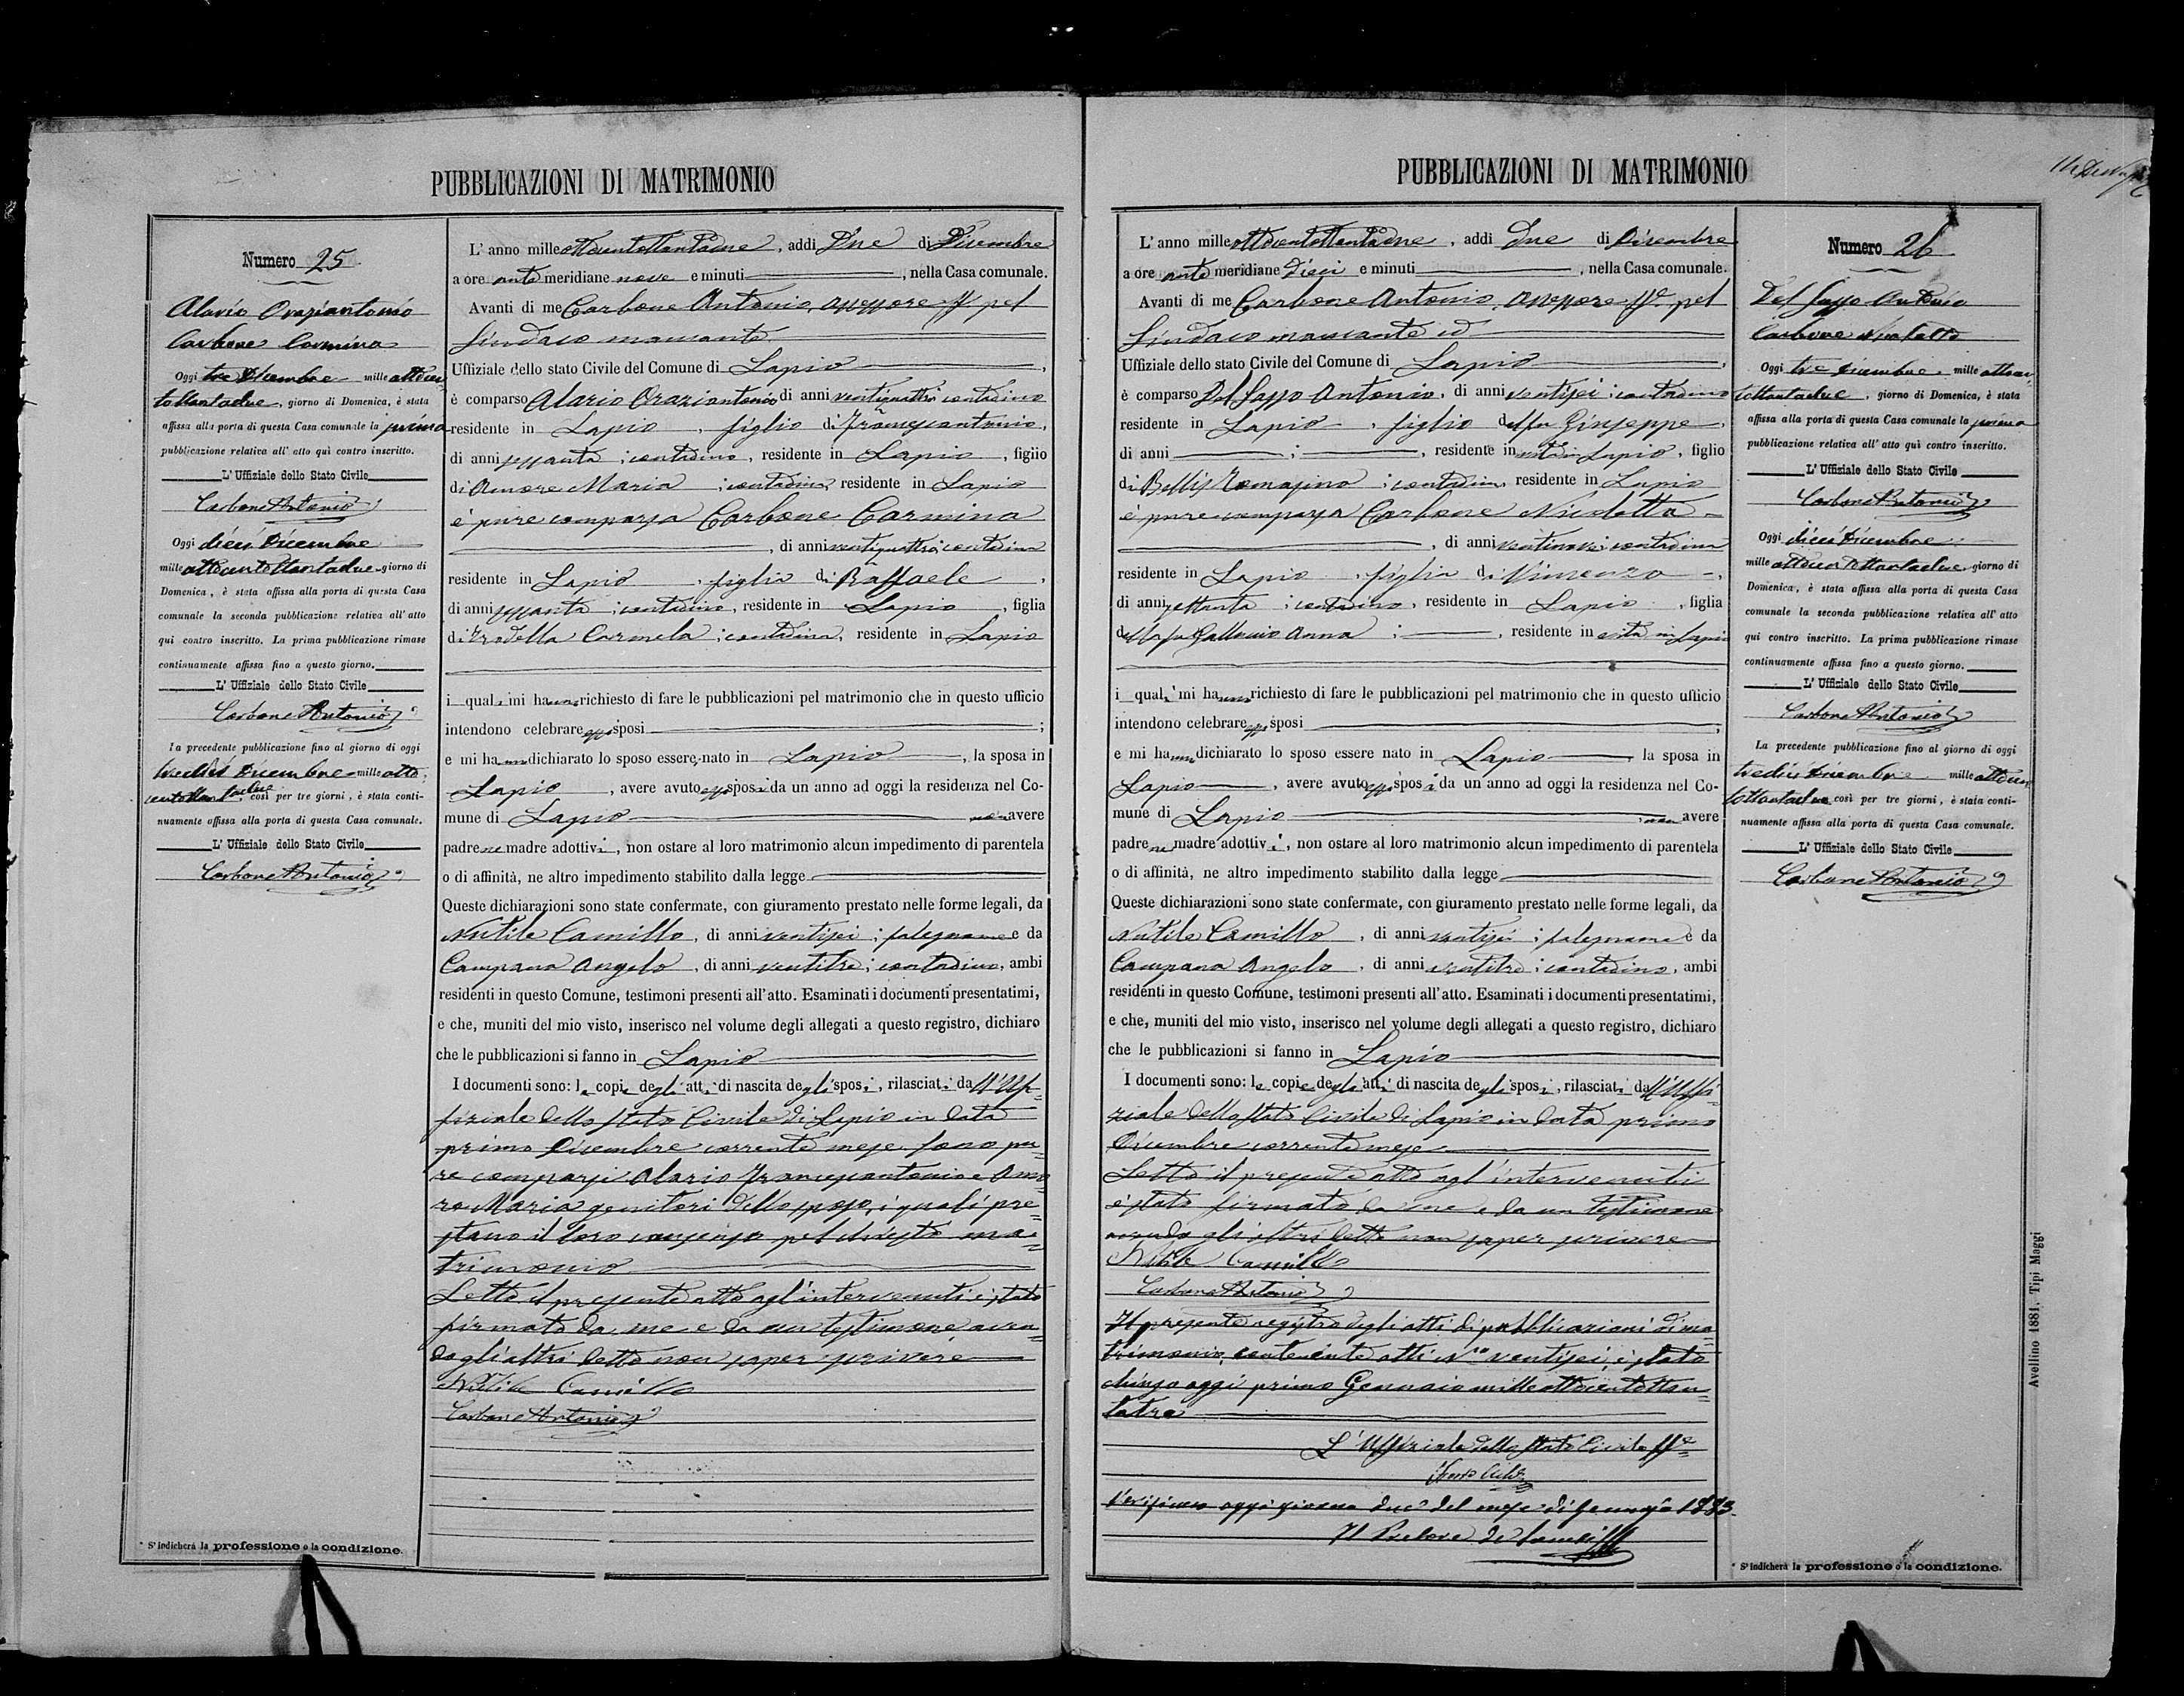 PUBBLICAZIONI DI MATRIMONIO
Numero 25
Alario Oraziantonio
Carbone Carmina
Oggi tre Dicembre mille ottocen-
tottantadue, giorno di Domenica, è stata
affissa alla porta di questa Casa comunale la prima
pubblicazione relativa all'atto quì contro inscritto.
L'Uffiziale dello Stato Civile
Carbone Antonio
Oggi dieci Dicembre
mille ottocentottantadue giorno di
Domenica, è stata affissa alla porta di questa Casa
comunale la seconda pubblicazione relativa all'atto
qui contro inscritto. La prima pubblicazione rimase
continuamente affissa fino a questo giorno.
L'Uffiziale dello Stato Civile
Carbone Antonio
La precedente pubblicazione fino al giorno di oggi
tredici Dicembre mille otto-
centottantadue, così per tre giorni, è stata conti-
nuamente affissa alla porta di questa Casa comunale.
L'Uffiziale dello Stato Civile
Carbone Antonio
* S'indicherà la professione o la condizione.
L'anno mille ottocentottantadue, addi Due di Dicembre
a ore ante meridiane nove e minuti, nella Casa comunale.
Avanti di me Carbone Antonio, assessore ff. pel
Sindaco mancante
Uffiziale dello stato Civile del Comune di Lapio,
è comparso Alario Oraziantonio di anni ventiquattro contadino
residente in Lapio, figlio di Francescantonio,
di anni sessanta; contadino, residente in Lapio, figlio
di Amore Maria; contadina, residente in Lapio
è pure comparsa Carbone Carmina
, di anni ventiquattro; contadina
residente in Lapio, figlia di Raffaele,
di anni sessanta; contadino, residente in Lapio, figlia
di Trodella Carmela; contadina, residente in Lapio
i quali mi hanno richiesto di fare le pubblicazioni pel matrimonio che in questo ufficio
intendono celebrare essi sposi;
e mi hanno dichiarato lo sposo essere nato in Lapio, la sposa in
Lapio, avere avuto essi sposi da un anno ad oggi la residenza nel Co-
mune di Lapio non avere
padre ne madre adottivi, non ostare al loro matrimonio alcun impedimento di parentela
o di affinità, ne altro impedimento stabilito dalla legge
Queste dichiarazioni sono state confermate, con giuramento prestato nelle forme legali, da
Nutile Camillo, di anni ventisei; falegname e da
Campana Angelo, di anni ventitre; contadino, ambi
residenti in questo Comune, testimoni presenti all'atto. Esaminati i documenti presentatimi,
e che, muniti del mio visto, inserisco nel volume degli allegati a questo registro, dichiaro
che le pubblicazioni si fanno in Lapio
I documenti sono: le copie degli atti di nascita degli sposi, rilasciati dall'Uf-
fiziale dello stato Civile di Lapio in data
primo Dicembre corrente mese. Sono pu-
re comparsi Alario Francescantonio e Amo-
re Maria genitori dello sposo, i quali pre-
stano il loro consenso pel chiesto ma-
trimonio
Letto il presente atto agl'intervenuti è stato
firmato da me e da un testimone aven-
do gli altri detto non saper scrivere
Nutile Camillo
Carbone Antonio
PUBBLICAZIONI DI MATRIMONIO
L'anno mille ottocentottantadue, addi due di Dicembre
a ore ante meridiane dieci e minuti, nella Casa comunale.
Avanti di me Carbone Antonio, assessore ff. pel
Sindaco mancante ed
Uffiziale dello stato Civile del Comune di Lapio,
è comparso Del Sasso Antonio, di anni ventisei; contadino
residente in Lapio, figlio del fu Giuseppe,
di anni ; , residente in vita in Lapio, figlio
di Bellis Tomasina; contadina, residente in Lapio
è pure comparsa Carbone Nicoletta
, di anni ventinove; contadina
residente in Lapio, figlia di Vincenzo,
di anni settanta; contadino, residente in Lapio, figlia
della fu Galluccio Anna; , residente in vita in Lapio
i quali mi hanno richiesto di fare le pubblicazioni pel matrimonio che in questo ufficio
intendono celebrare essi sposi;
e mi hanno dichiarato lo sposo essere nato in Lapio la sposa in
Lapio, avere avuto essi sposi da un anno ad oggi la residenza nel Co-
mune di Lapio; non avere
padre ne madre adottivi, non ostare al loro matrimonio alcun impedimento di parentela
o di affinità, ne altro impedimento stabilito dalla legge
Queste dichiarazioni sono state confermate, con giuramento prestato nelle forme legali, da
Nutile Camillo, di anni ventisei; falegname e da
Campana Angelo, di anni ventitre; contadino, ambi
residenti in questo Comune, testimoni presenti all'atto. Esaminati i documenti presentatimi,
e che, muniti del mio visto, inserisco nel volume degli allegati a questo registro, dichiaro
che le pubblicazioni si fanno in Lapio
I documenti sono: le copie degli atti di nascita degli sposi, rilasciati dall'Uffi-
ziale dello stato Civile di Lapio in data primo
Dicembre corrente mese
Letto il presente atto agl'intervenuti
è stato firmato da me e da un testimone
avendo gli altri detto non saper scrivere
Nutile Camillo
Carbone Antonio
Il presente registro degli atti di pubblicazioni di ma-
trimonio, contenente atti No ventisei, è stato
chiuso oggi primo Gennaio mille ottocentottan-
tatre
L'Uffiziale dello Stato Civile ff.
Verificato oggi giorno due del mese di Gennajo 1883.
Il Pretore
Numero 26
Del Sasso Antonio
Carbone Nicoletta
Oggi tre Dicembre mille ottocen-
tottantadue, giorno di Domenica, è stata
affissa alla porta di questa Casa comunale la prima
pubblicazione relativa all'atto quì contro inscritto.
L'Uffiziale dello Stato Civile
Carbone Antonio
Oggi dieci Dicembre
mille ottocentottantadue giorno di
Domenica, è stata affissa alla porta di questa Casa
comunale la seconda pubblicazione relativa all'atto
qui contro inscritto. La prima pubblicazione rimase
continuamente affissa fino a questo giorno.
L'Uffiziale dello Stato Civile
Carbone Antonio
La precedente pubblicazione fino al giorno di oggi
tredici Dicembre mille ottocen-
tottantadue così per tre giorni, è stata conti-
nuamente affissa alla porta di questa Casa comunale.
L'Uffiziale dello Stato Civile
Carbone Antonio
* S'indicherà la professione o la condizione.
Avellino 1881, Tipi Maggi